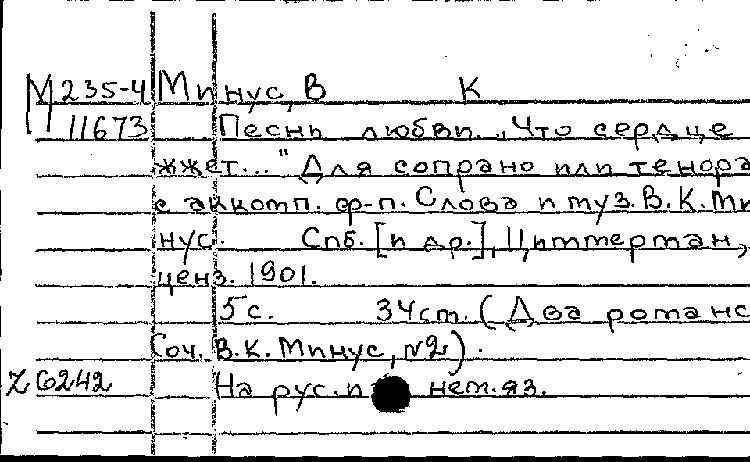 М 235-4 Минус, В К
11673 Песнь любви. „Что сердце
жжет..." Для сопрано или тенора
с аккомп. ф-п. Слова и муз. В.К.Ми
нус. Спб. [и др.], Циммерман,
ценз. 1901.
5с. 34см. (Два романс
Соч. В.К.Минус, №2).
Z6242 На рус. и нем.яз.